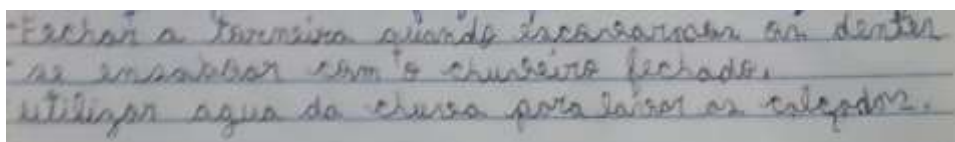 -Fechar a torneira quando escovarmos os dentes
se ensaboar com o chuveiro fechado.
utilizar agua da chuva para lavar as calçadas.